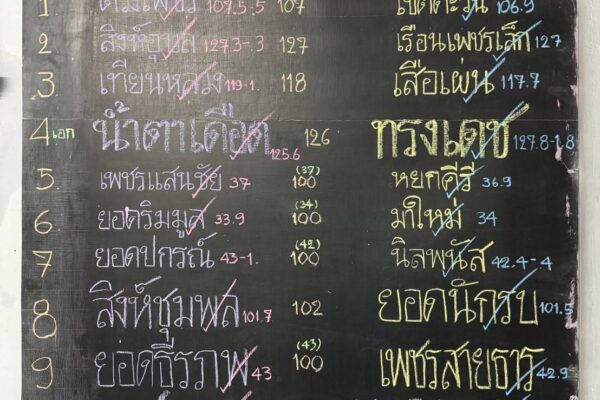 1 107.5.5 107 106.9
2 สิงห์อุบล 127.3-.3 127 เรือนเพชรเล็ก 127
3. เทียนหลวง 119-1. 118 เสือเผ่น 117.7
4 เอก น้ำตาเดือด 125.6 126 ทรงเดช 127.8-1.8
5. เพชรแสนชัย 37 (37) 100 หยกคีรี 36.9
6. ยอดริมมูล 33.9 (34) 100 มาใหม่ 34
7 ยอดปกรณ์ 43-1. (42) 100 นิลพนัส 42.4-4
8 สิงห์ชุมพล 101.7 102 ยอดนักรบ 101.5
9 ยอดธีรราพ 43 (43) 100 เพชรสายธาร 42.9